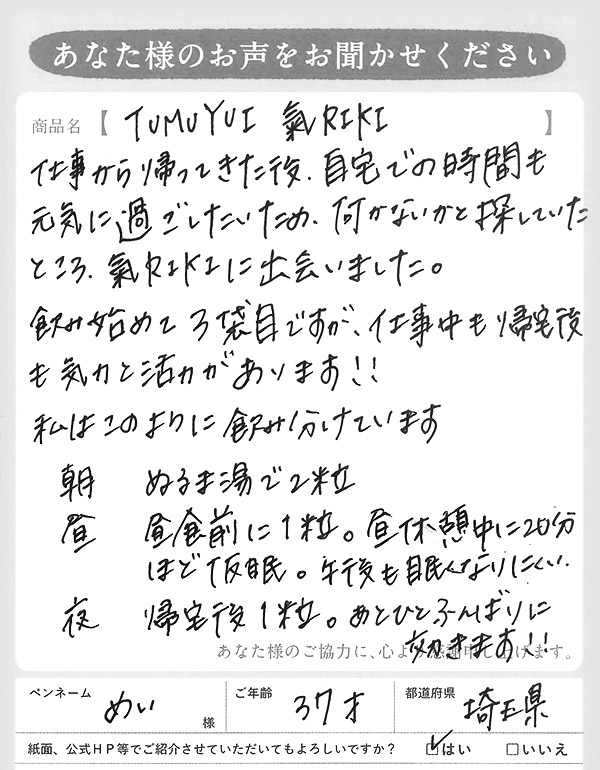 あなた様のお声をお聞かせください
商品名【 TUMUYUI 氣RIKI 】
仕事から帰ってきた後、自宅での時間も
元気に過ごしたいため、何かないかと探していた
ところ、氣RIKIに出会いました。
飲み始めて3袋目ですが、仕事中も帰宅後
も気力と活力があります!!
私はこのように飲み分けています
朝 ぬるま湯で2粒
昼 昼食前に1粒。昼休憩中に20分
ほど仮眠。午後も眠くなりにくい。
夜 帰宅後1粒。あとひとふんばりに
効きます!!
あなた様のご協力に、心より感謝申し上げます。
ペンネーム めい 様 ご年齢 37才 都道府県 埼玉県
紙面、公式HP等でご紹介させていただいてもよろしいですか? ☑はい □いいえ